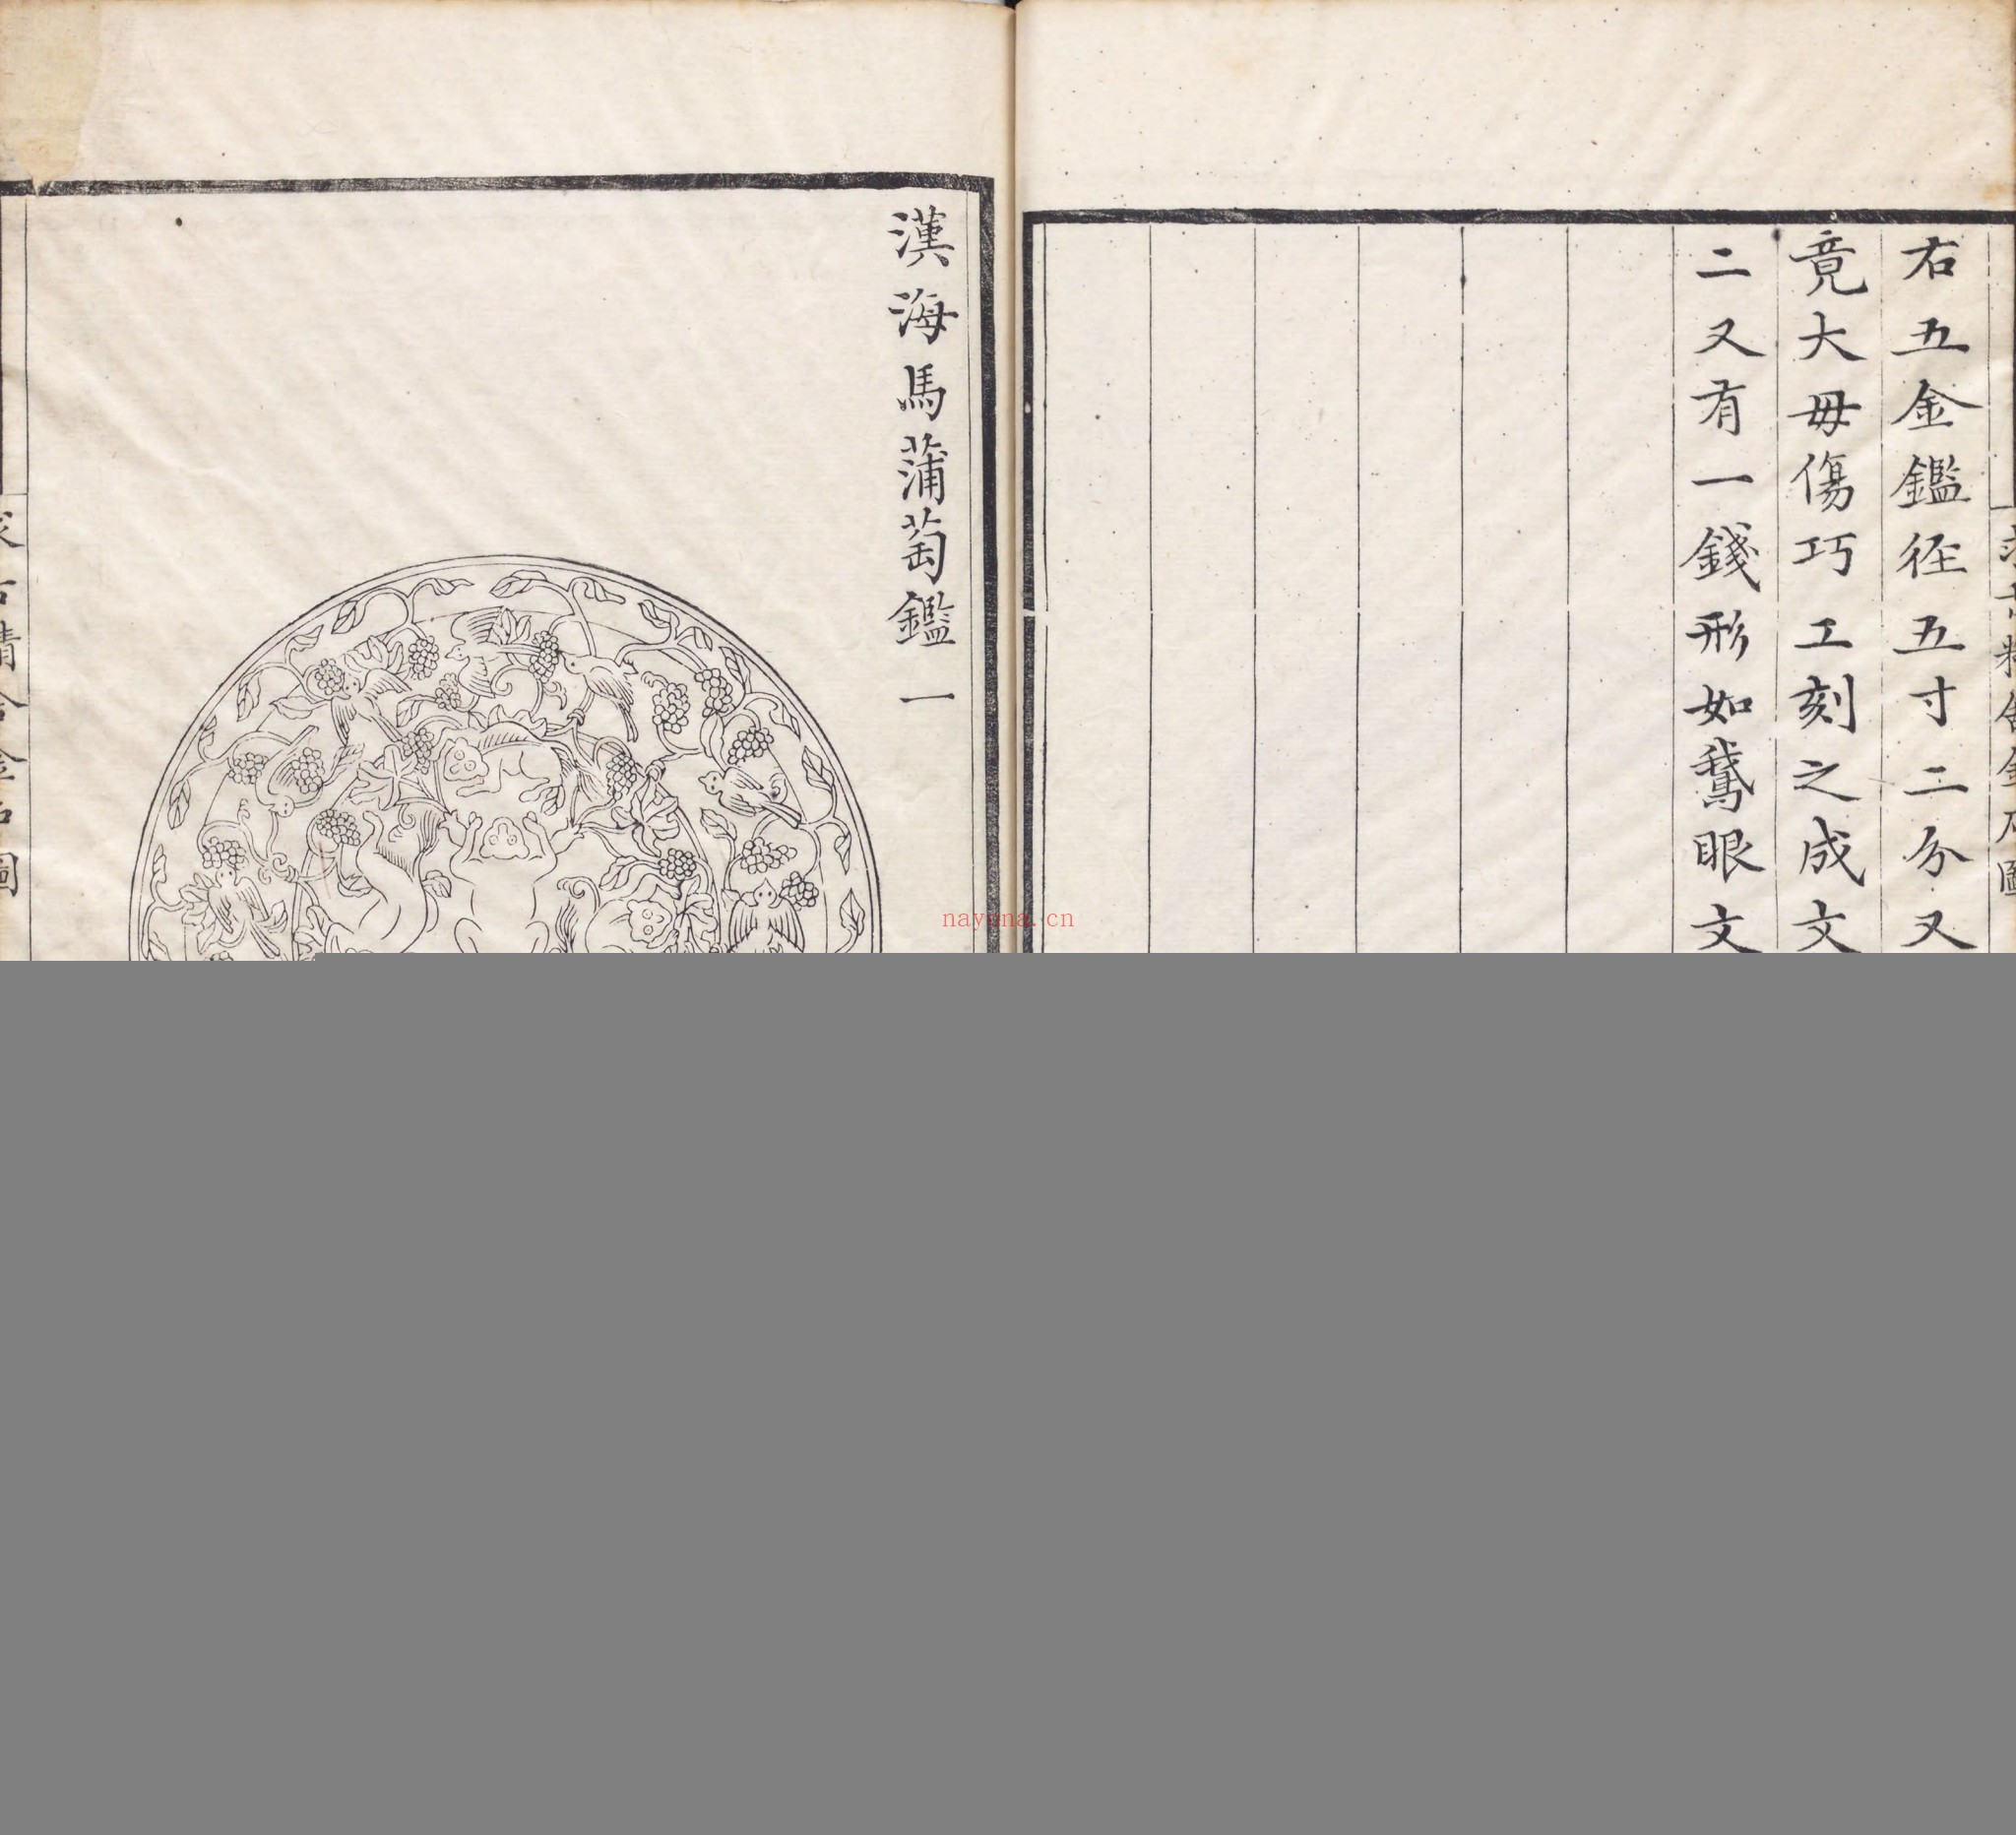 右五金鑑徑五寸二分又
竟大毋傷巧工刻之成文
二又有一錢形如鵞眼文
漢海馬蒲萄鑑一
nayona.cn